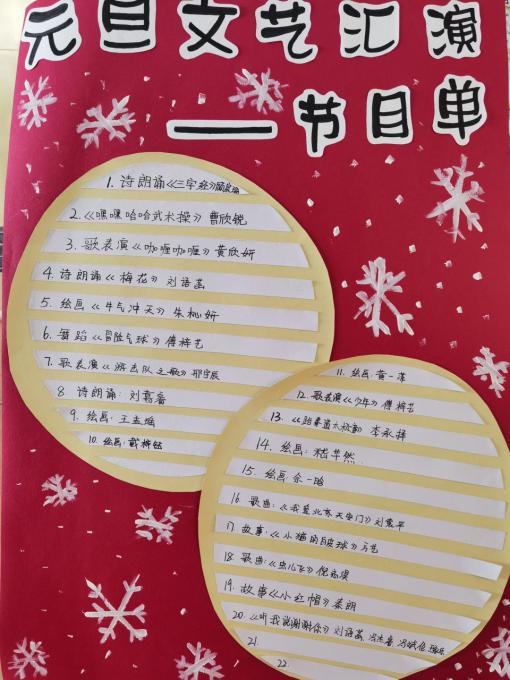 元旦文艺汇演
——节目单
1. 诗朗诵《三字经》
2.《嘿嘿哈哈武术操》曹欣锐
3. 歌表演《咖喱咖喱》黄欣妍
4. 诗朗诵《梅花》刘语菡
5. 绘画《牛气冲天》朱杺妍
6. 舞蹈《冒险气球》傅梓艺
7. 歌表演《游击队之歌》邢宇辰
8 诗朗诵: 刘嘉睿
9. 绘画: 王孟瑶
10. 绘画: 戴梓铉
11. 绘画: 黄一
12. 歌表演《少年》傅梓艺
13.《跆拳道太极》李承择
14. 绘画: 嵇芊然
15. 绘画: 余一晗
16. 歌曲:《我爱北京天安门》刘 平
17. 故事:《小猫的皮球》方艺
18. 歌曲:《虫儿飞》倪
19. 故事《小红帽》 朗
20.《听我说谢谢你》刘语菡
21.
22.